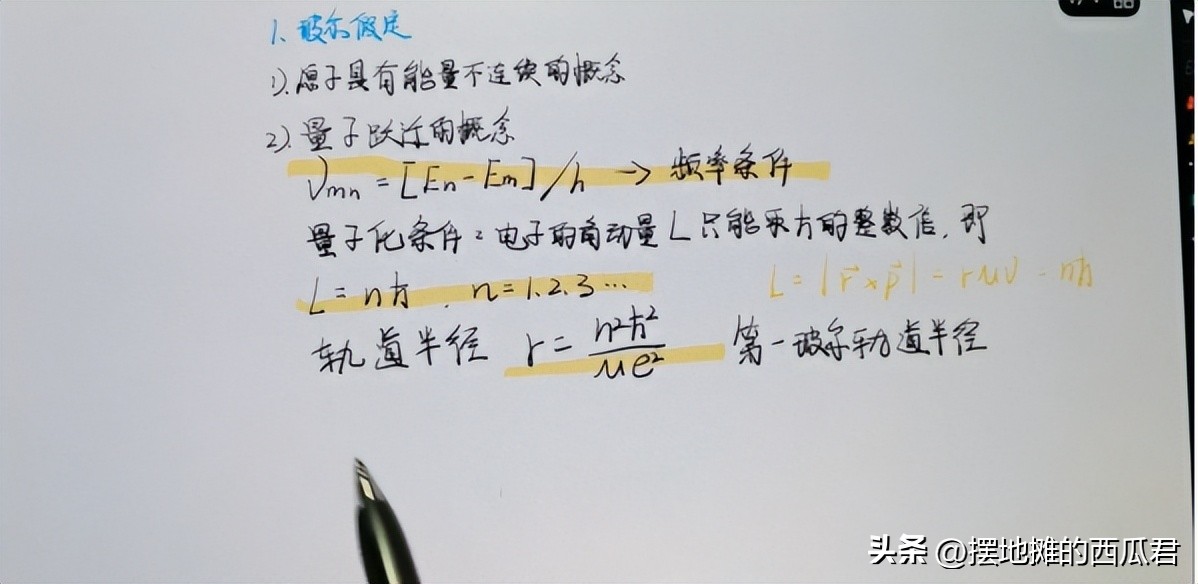 1、玻尔假定
1).原子具有能量不连续的概念
2).量子跃迁的概念
νmn = [En-Em]/h → 频率条件
量子化条件：电子的角动量L只能取ħ的整数倍，即
L = nħ , n=1.2.3…
L = |r⃗×p⃗| = rμν = nħ
轨道半径 r = n²ħ²/μe² 第一玻尔轨道半径
头条 @摆地摊的西瓜君